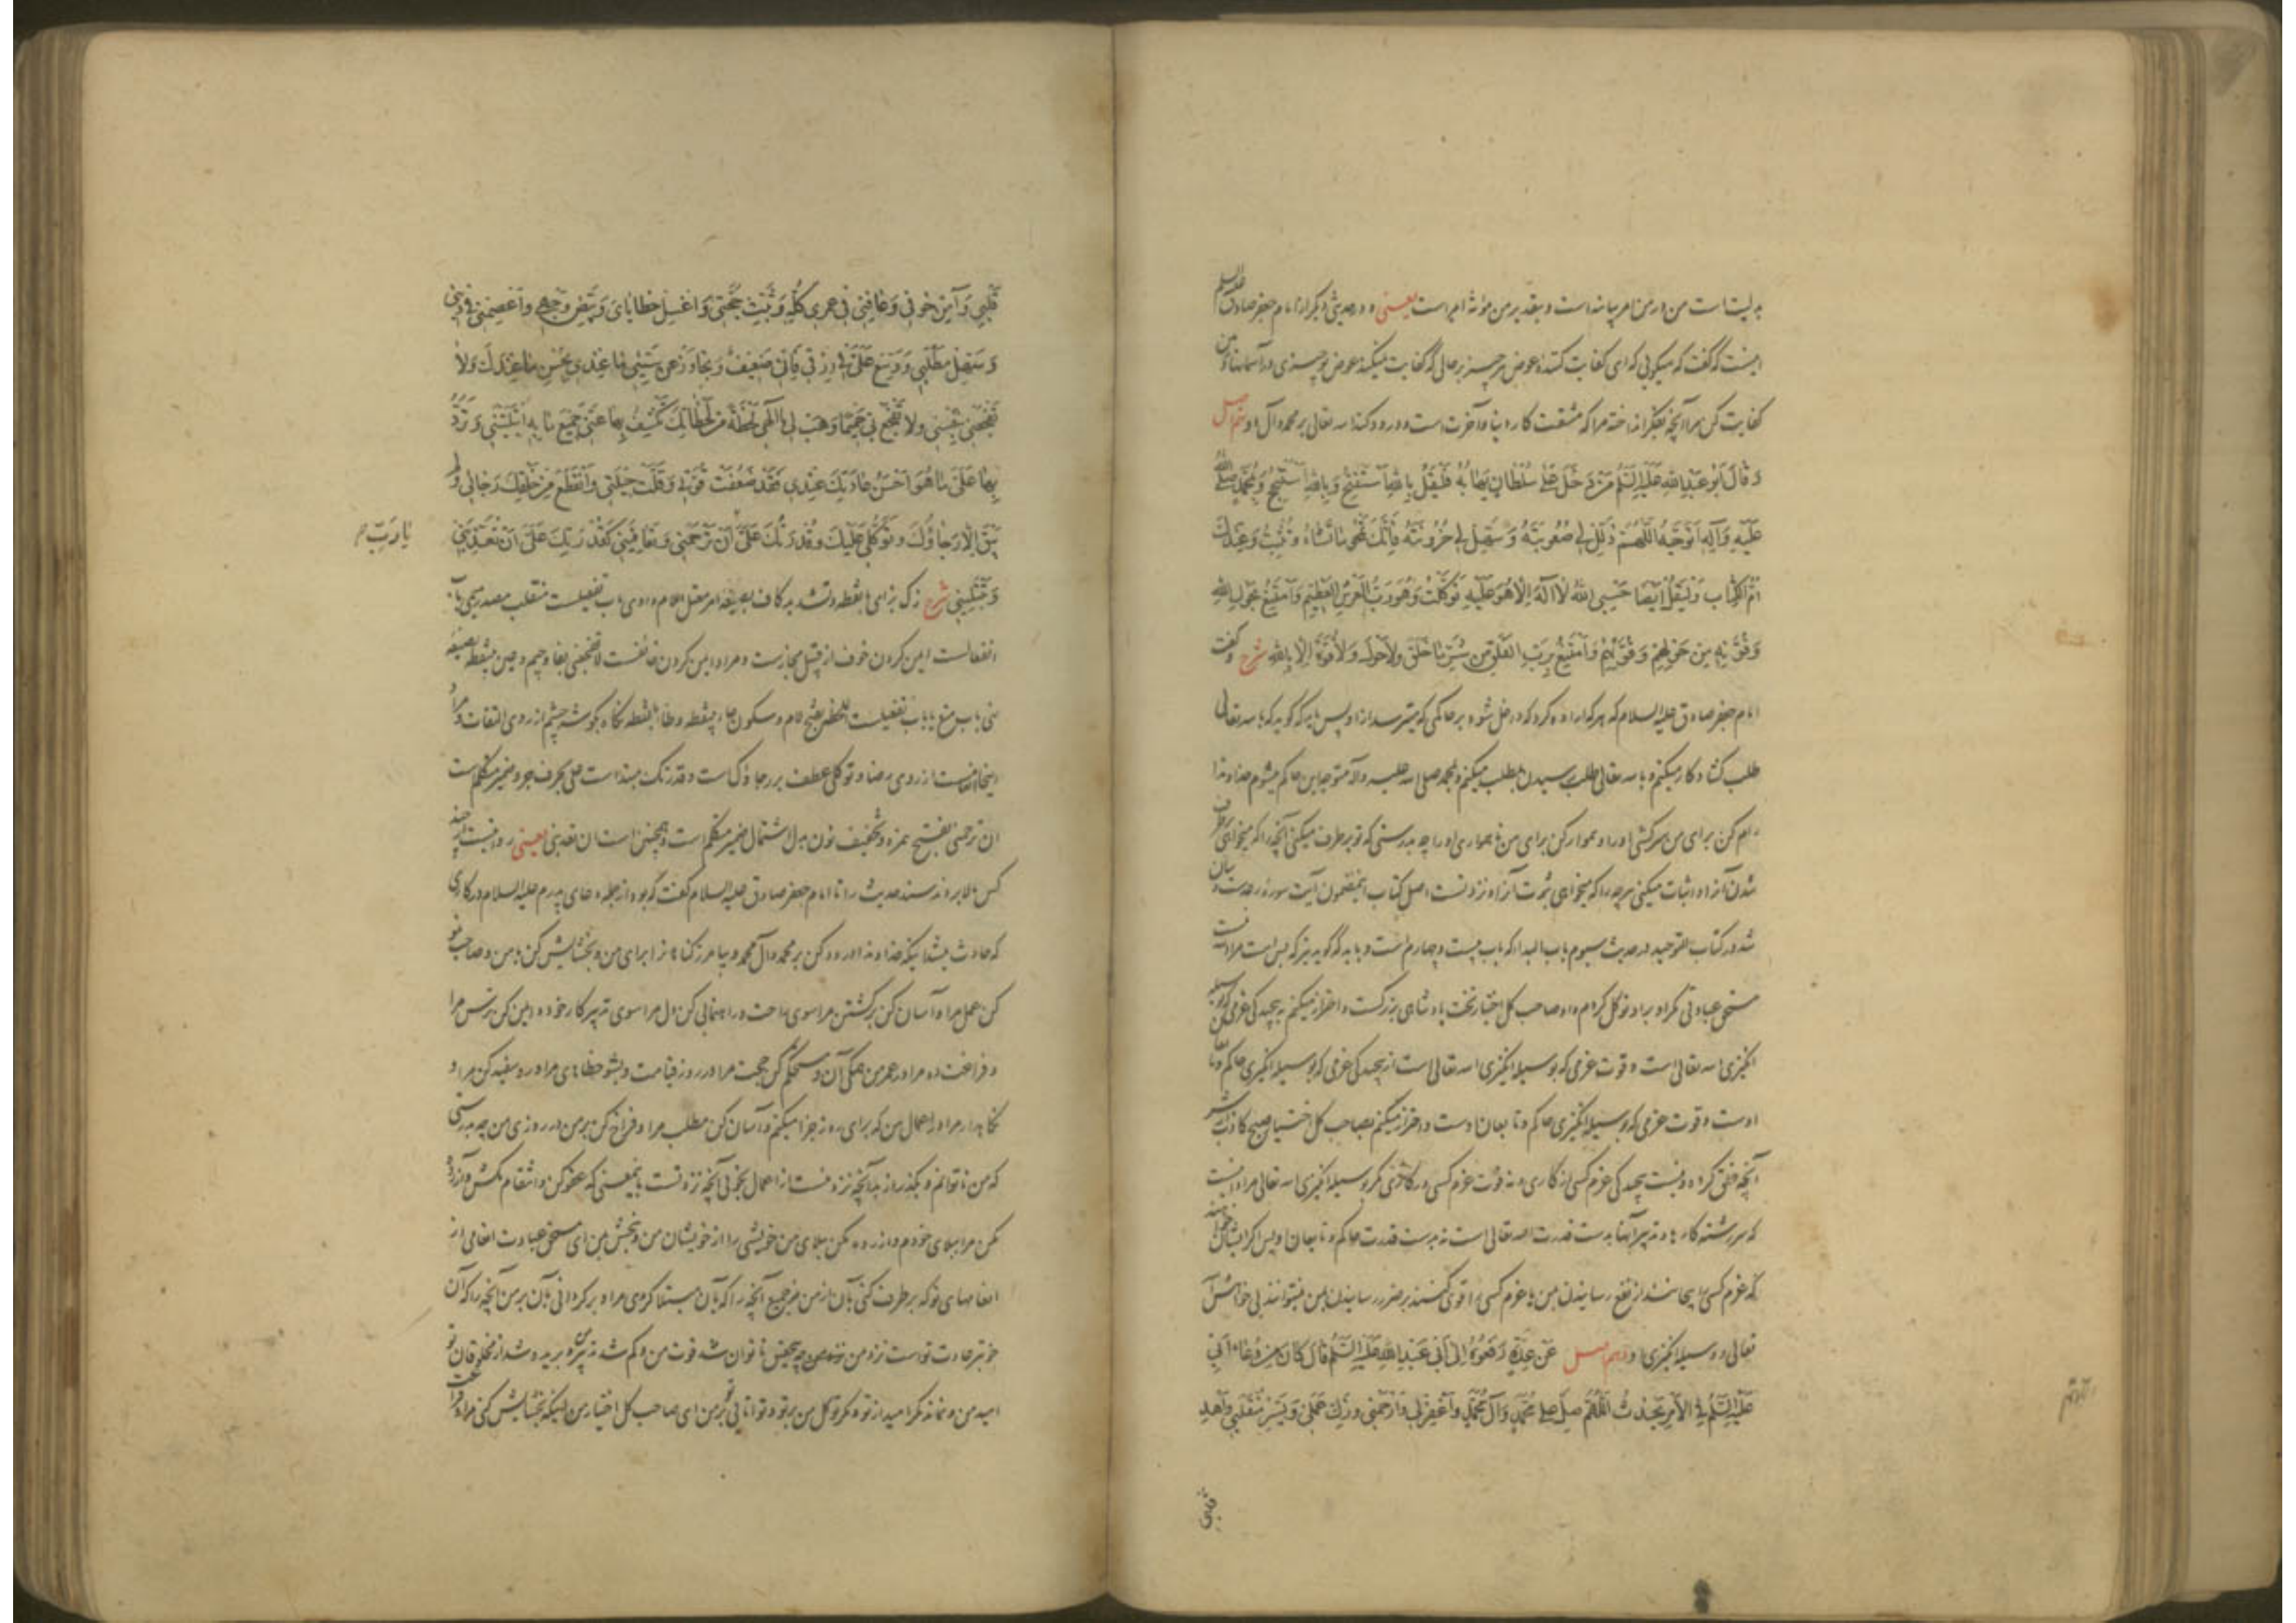 بدلیت است من در من امر بیانیه است و بتقدیر من مؤنة امر است یعنی و در حدیثی دیگر از امام جعفر صادق علیه السلام
اینست که گفت که میگوئی که ای کفایت کننده عوض هر چیز بر حالی که کفایت نمیکند عوض تو چیزی در آسمانها و زمین
کفایت کن مرا آنچه بفکر انداخته مرا که مشقت کار دنیا و آخرت است و درود کناد الله تعالی بر محمد و آل او نهم اصل
وَقَالَ اَبُو عَبْدِ اللهِ عَلَيْهِ السَّلَمُ مَنْ دَخَلَ عَلى سُلْطَانٍ يَهَابُهُ فَلْيَقُلْ بِاللهِ اَسْتَفْتِحُ وَبِاللهِ اَسْتَنْجِحُ وَبِمُحَمَّدٍ صَلَّى اللهُ
عَلَيْهِ وَآلِهِ اَتَوَجَّهُ اَللّهُمَّ ذَلِّلْ لِي صُعُوبَتَهُ وَسَهِّلْ لِي حُزُونَتَهُ فَاِنَّكَ تَمْحُو مَا تَشَاءُ وَتُثْبِتُ وَعِنْدَكَ
اُمُّ الْكِتَابِ وَتَقُلْ اَيْضًا حَسْبِيَ اللهُ لَا اِلهَ اِلَّا هُوَ عَلَيْهِ تَوَكَّلْتُ وَهُوَ رَبُّ الْعَرْشِ الْعَظِيمِ وَاَمْتَنِعُ بِحَوْلِ اللهِ
وَقُوَّتِهِ مِنْ حَوْلِهِمْ وَقُوَّتِهِمْ وَاَمْتَنِعُ بِرَبِّ الْفَلَقِ مِنْ شَرِّ مَا خَلَقَ وَلَا حَوْلَ وَلَا قُوَّةَ اِلَّا بِاللهِ شرح و گفت
امام جعفر صادق علیه السلام که هر که اراده کرد که داخل شود بر حاکمی که میترسد از او پس باید که گوید که بالله تعالی
طلب گشاد کار میکنم و بالله تعالی طلب رسیدن بمطلب میکنم و بمحمد صلی الله علیه و آله متوجه این حاکم میشوم خداوندا
رام کن برای من سرکشی او را و هموار کن برای من ناهمواری او را چه بدرستی که تو برطرف میکنی آنچه را که میخواهی برطرف
شدن آنرا و اثبات میکنی هر چه را که میخواهی ثبوت آنرا و نزد تست اصل کتاب اینمضمون آیت سوره رعدست و بیان
شد در کتاب التوحید در حدیث سیوم باب البدا که باب بیست و چهارم است و باید که گوید نیز که بس است مرا الله نیست
مستحق عبادتی مگر او بر او توکل کردم و او صاحب کل اختیار تخت پادشاهی بزرگست و احتراز میکنم به پیچیدگی عزمی که بوسیله
انگیزی الله تعالی است و قوت عزمی که بوسیله انگیزی الله تعالی است از پیچیدگی عزمی که بوسیله انگیزی حاکم و تابعان
اوست و قوت عزمی که بوسیله انگیزی حاکم و تابعان اوست و احتراز میکنم بصاحب کل اختیار صبح کاذب از شر
آنچه خلق کرده و نیست پیچیدگی عزم کسی از کاری و نه قوت عزم کسی در کاری مگر بوسیله انگیزی الله تعالی مراد اینست
که سررشته کارها و تدبیر آنها بدست قدرت الله تعالی است نه بدست قدرت حاکم و تابعان او پس اگر ایشان خواهند
که عزم کسی را بپیچانند از نفع رسانیدن بمن یا عزم کسی را قوی کنند بر ضرر رسانیدن بمن نمیتوانند بی خواهش الله
تعالی و وسیله انگیزی او دهم اصل عَنْ عِدَّةٍ رَفَعُوهُ اِلى اَبِي عَبْدِ اللهِ عَلَيْهِ السَّلَمُ قَالَ كَانَ مِنْ دُعَاءِ اَبِي
عَلَيْهِ السَّلَمُ فِي الْاَمْرِ يَحْدُثُ اَللّهُمَّ صَلِّ عَلى مُحَمَّدٍ وَآلِ مُحَمَّدٍ وَاغْفِرْ لِي وَارْحَمْنِي وَزَكِّ عَمَلِي وَيَسِّرْ مُنْقَلَبِي وَاهْدِ
قلبی
قَلْبِي وَآمِنْ خَوْفِي وَعَافِنِي فِي عُمْرِي كُلِّهِ وَثَبِّتْ حُجَّتِي وَاغْسِلْ خَطَايَايَ وَبَيِّضْ وَجْهِي وَاعْصِمْنِي فِي دِينِي
وَسَهِّلْ مَطْلَبِي وَوَسِّعْ عَلَيَّ فِي رِزْقِي فَاِنِّي ضَعِيفٌ وَتَجَاوَزْ عَنْ سَيِّئِ مَا عِنْدِي بِحُسْنِ مَا عِنْدَكَ وَلَا
تَفْجَعْنِي بِنَفْسِي وَلَا تَفْجَعْ لِي حَمِيمًا وَهَبْ لِي يَا اِلهِي لَحْظَةً مِنْ لَحَظَاتِكَ تَكْشِفُ بِهَا عَنِّي جَمِيعَ مَا بِهِ ابْتَلَيْتَنِي وَتَرُدُّ
بِهَا عَلَيَّ مَا هُوَ اَحْسَنُ عَادَتِكَ عِنْدِي فَقَدْ ضَعُفَتْ قُوَّتِي وَقَلَّتْ حِيلَتِي وَانْقَطَعَ مِنْ خَلْقِكَ رَجَائِي وَلَمْ
يَبْقَ اِلَّا رَجَاؤُكَ وَتَوَكُّلِي عَلَيْكَ وَقُدْرَتُكَ عَلَيَّ اَنْ تَرْحَمَنِي وَتُعَافِيَنِي كَقُدْرَتِكَ عَلَيَّ اَنْ تُعَذِّبَنِي
یا رَبِّ م
وَتَبْتَلِيَنِي شرح زک بزای بانقطه و تشدید کاف بصیغه امر معتل اللام واوی باب تفعیلست منقلب مصدر میمی باب
انفعالست ایمن کردن خوف از قبیل مجازست و مراد ایمن کردن خائفست لا تفجعنی بفا و جیم و عین بینقطه بصیغه
نهی باب منع یا باب تفعیلست لحظه بفتح لام و سکون حاء بینقطه و ظاء بانقطه نگاه بگوشه چشم از روی التفات و مراد
اینجا التفاتست از روی رضا و توکلی عطف بر رجاؤک است و قدرتک مبتداست علی بحرف جر و ضمیر متکلم است
ان ترحمنی بفتح همزه و تخفیف نون بدل اشتمال ضمیر متکلم است و همچنین است ان تعذبنی یعنی روایتست از چند
کس بالا بردند سند حدیث را تا امام جعفر صادق علیه السلام گفت که بود از جمله دعای پدرم علیه السلام در کاری
که حادث میشد اینکه خداوندا درود کن بر محمد و آل محمد و بیامرز گناهانرا برای من و بخشایش کن بمن و صاحب نمو
کن عمل مرا و آسان کن برگشتن مرا سوی راحت و راهنمائی کن دل مرا سوی تدبیر کار خود و ایمن کن ترس مرا
و فراغت ده مرا در عمر من همگی آن و مستحکم کن حجت مرا در روز قیامت و بشو خطاهای مرا و رو سفید کن مرا و
نگاهدار مرا در اعمال من که برای روز جزا میکنم و آسان کن مطلب مرا و فراخ کن بر من در روزی من چه بدرستی
که من ناتوانم و بگذر از بد آنچه نزد منست از اعمال بخوبی آنچه نزد تست باینمعنی که عفو کن و انتقام مکش و آزرده
مکن مرا ببلای خودم و آزرده مکن ببلای من خویشی را از خویشان من و ببخش بمن ای مستحق عبادت انعامی از
انعامهای تو که برطرف کنی بآن از من جمیع آنچه را که بآن مبتلا کردی مرا و برگردانی بآن بر من آنچه را که آن
خوبتر عادت تو است نزد من چه بتحقیق ناتوان شد قوت من و کم شد تدبیر من و بریده شد از مخلوقان تو
امید من و نماند مگر امید از تو و مگر توکل من بر تو و توانائی تو بر من ای صاحب کل اختیار من اینکه بخشایش کنی مرا و عافیت